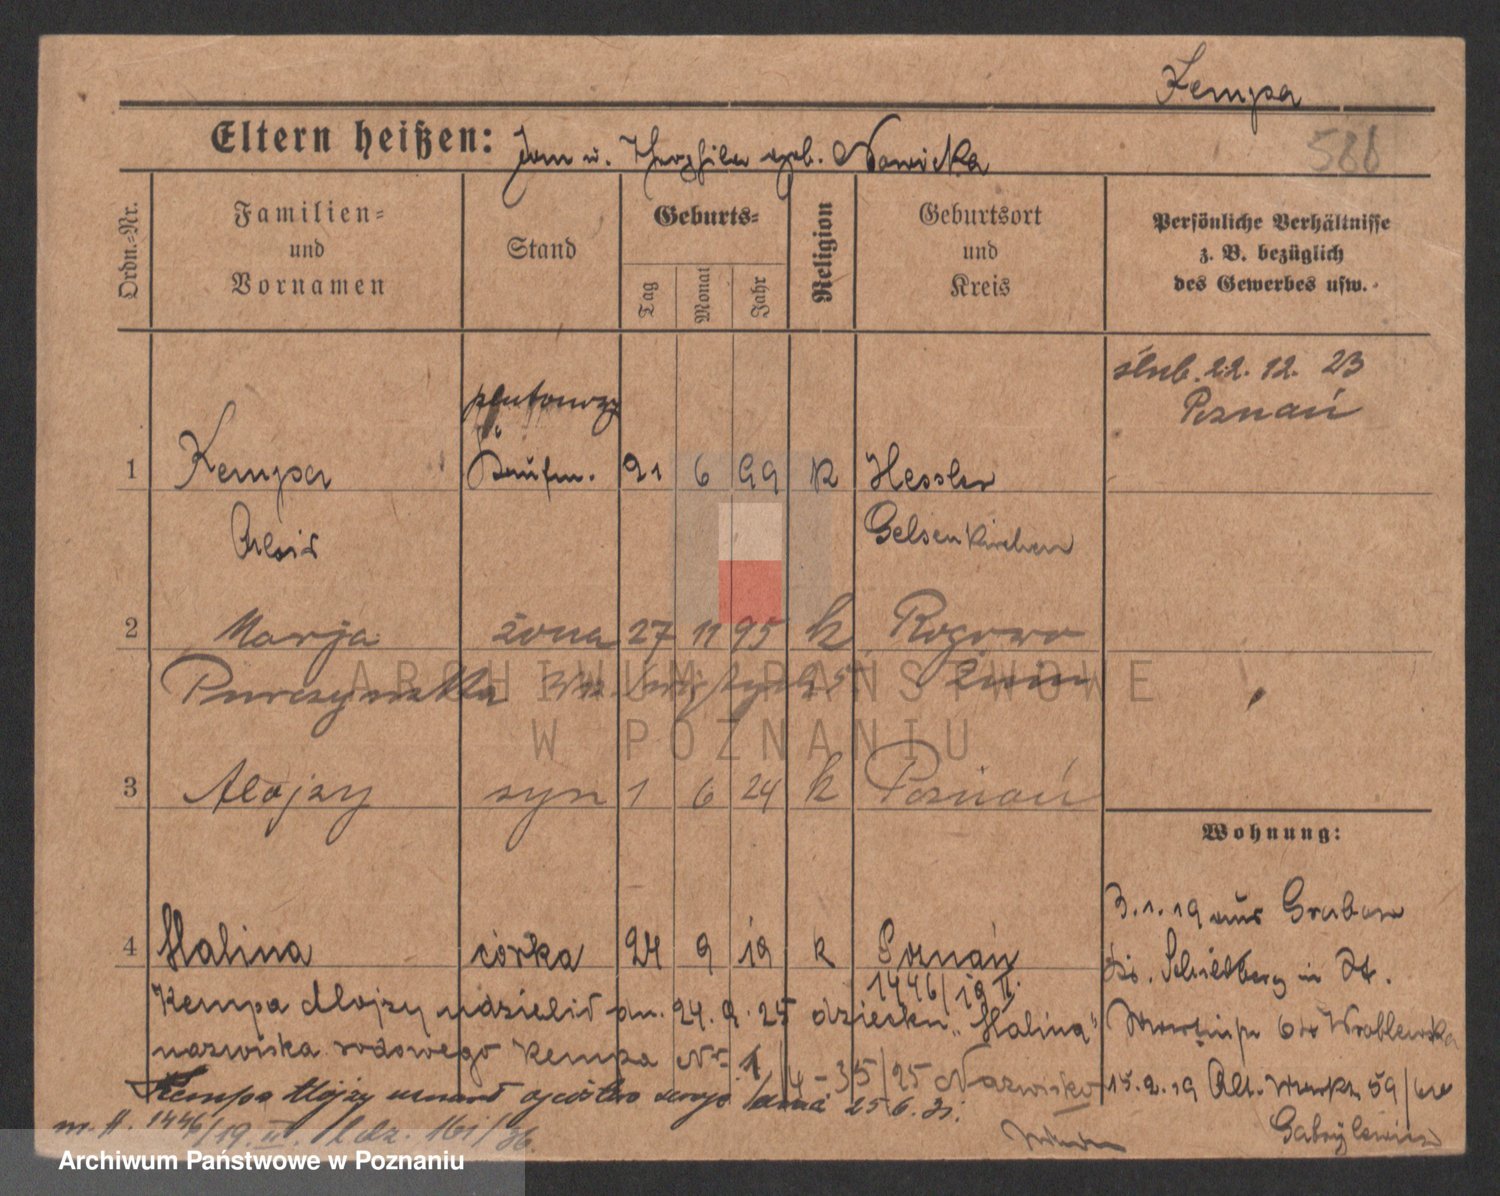 Kempa
586
Eltern heißen: Jan u. Theophila geb. Nowicka
Ordn.=Nr.
Familien=
und
Vornamen
Stand
Geburts=
Tag
Monat
Jahr
Religion
Geburtsort
und
Kreis
Persönliche Verhältnisse
z. B. bezüglich
des Gewerbes usw.
ślub. 22. 12. 23
Poznań
plutonowy
1 Kempa Kaufm. 21 6 99 K Hessler
Alois Gelsenkirchen
2 Marja żona 27 11 95 k Rogowo
Żnin
3 Alojzy syn 1 6 24 k Poznań
Wohnung:
3.1.19 aus Grabow
Schildberg in St.
Martinstr 6 Wroblewska
15.2.19 Alt. Markt 59/60
Gabrylewicz
4 Halina córka 24 9 19 k Poznań
1446/19 II.
Kempa Alojzy udzielił dn. 24. 9. 25 dziecku „Halina"
nazwiska rodowego Kempa Nr. 1/4-35/25 Nazwisko
Kempa Alojzy uznał ojcostwo swoje dnia 25.6.31.
1446/19 II. L.dz. 161/36.
ARCHIWUM PAŃSTWOWE
W POZNANIU
Archiwum Państwowe w Poznaniu